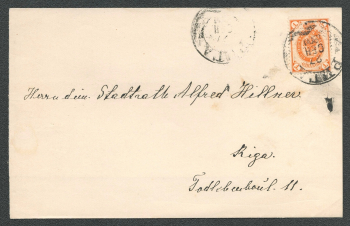 Herrn dim. Stadtrath Alfred Hillner.
Riga.
Todlebenboul. 11.